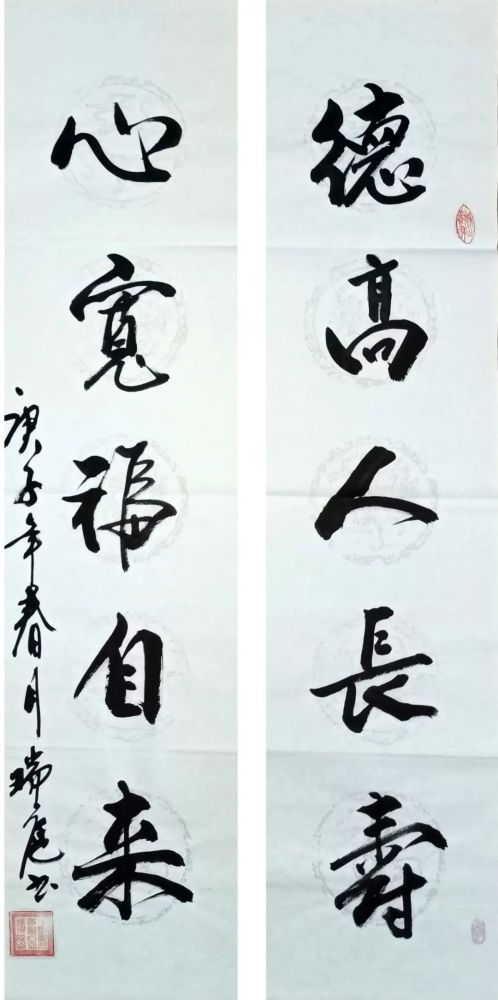 德高人長壽
心寬福自来
庚子年春月瑞庭书